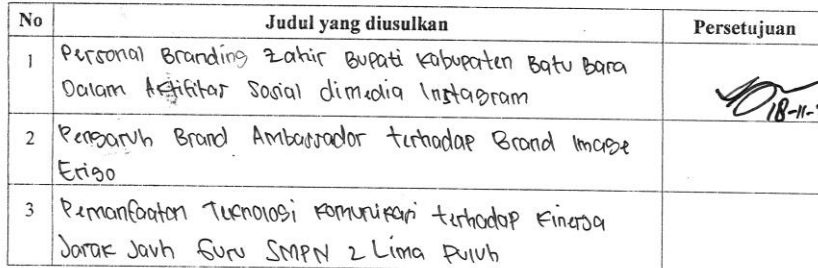 No Judul yang diusulkan Persetujuan
1 Personal Branding Zahir Bupati Kabupaten Batu Bara
Dalam Aktifitas Sosial dimedia Instagram
18-11-
2 Pengaruh Brand Ambassador terhadap Brand Image
Erigo
3 Pemanfaatan Teknologi Komunikasi terhadap Kinerja
Jarak Jauh Guru SMPN 2 Lima Puluh